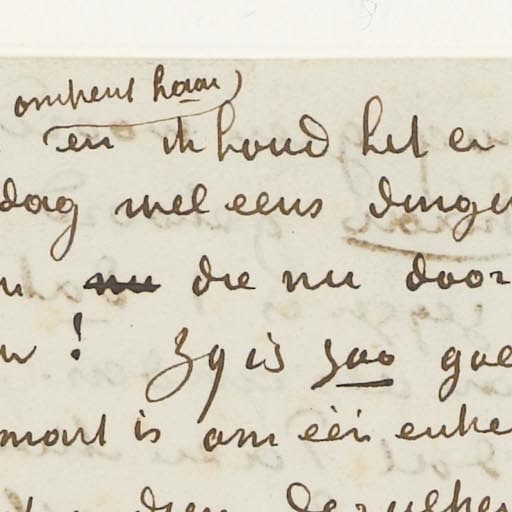 omtrent haar)
en ik houd het er
dag wel eens dinge
nu die nu door
! Zy is zoo goe
is om één enke